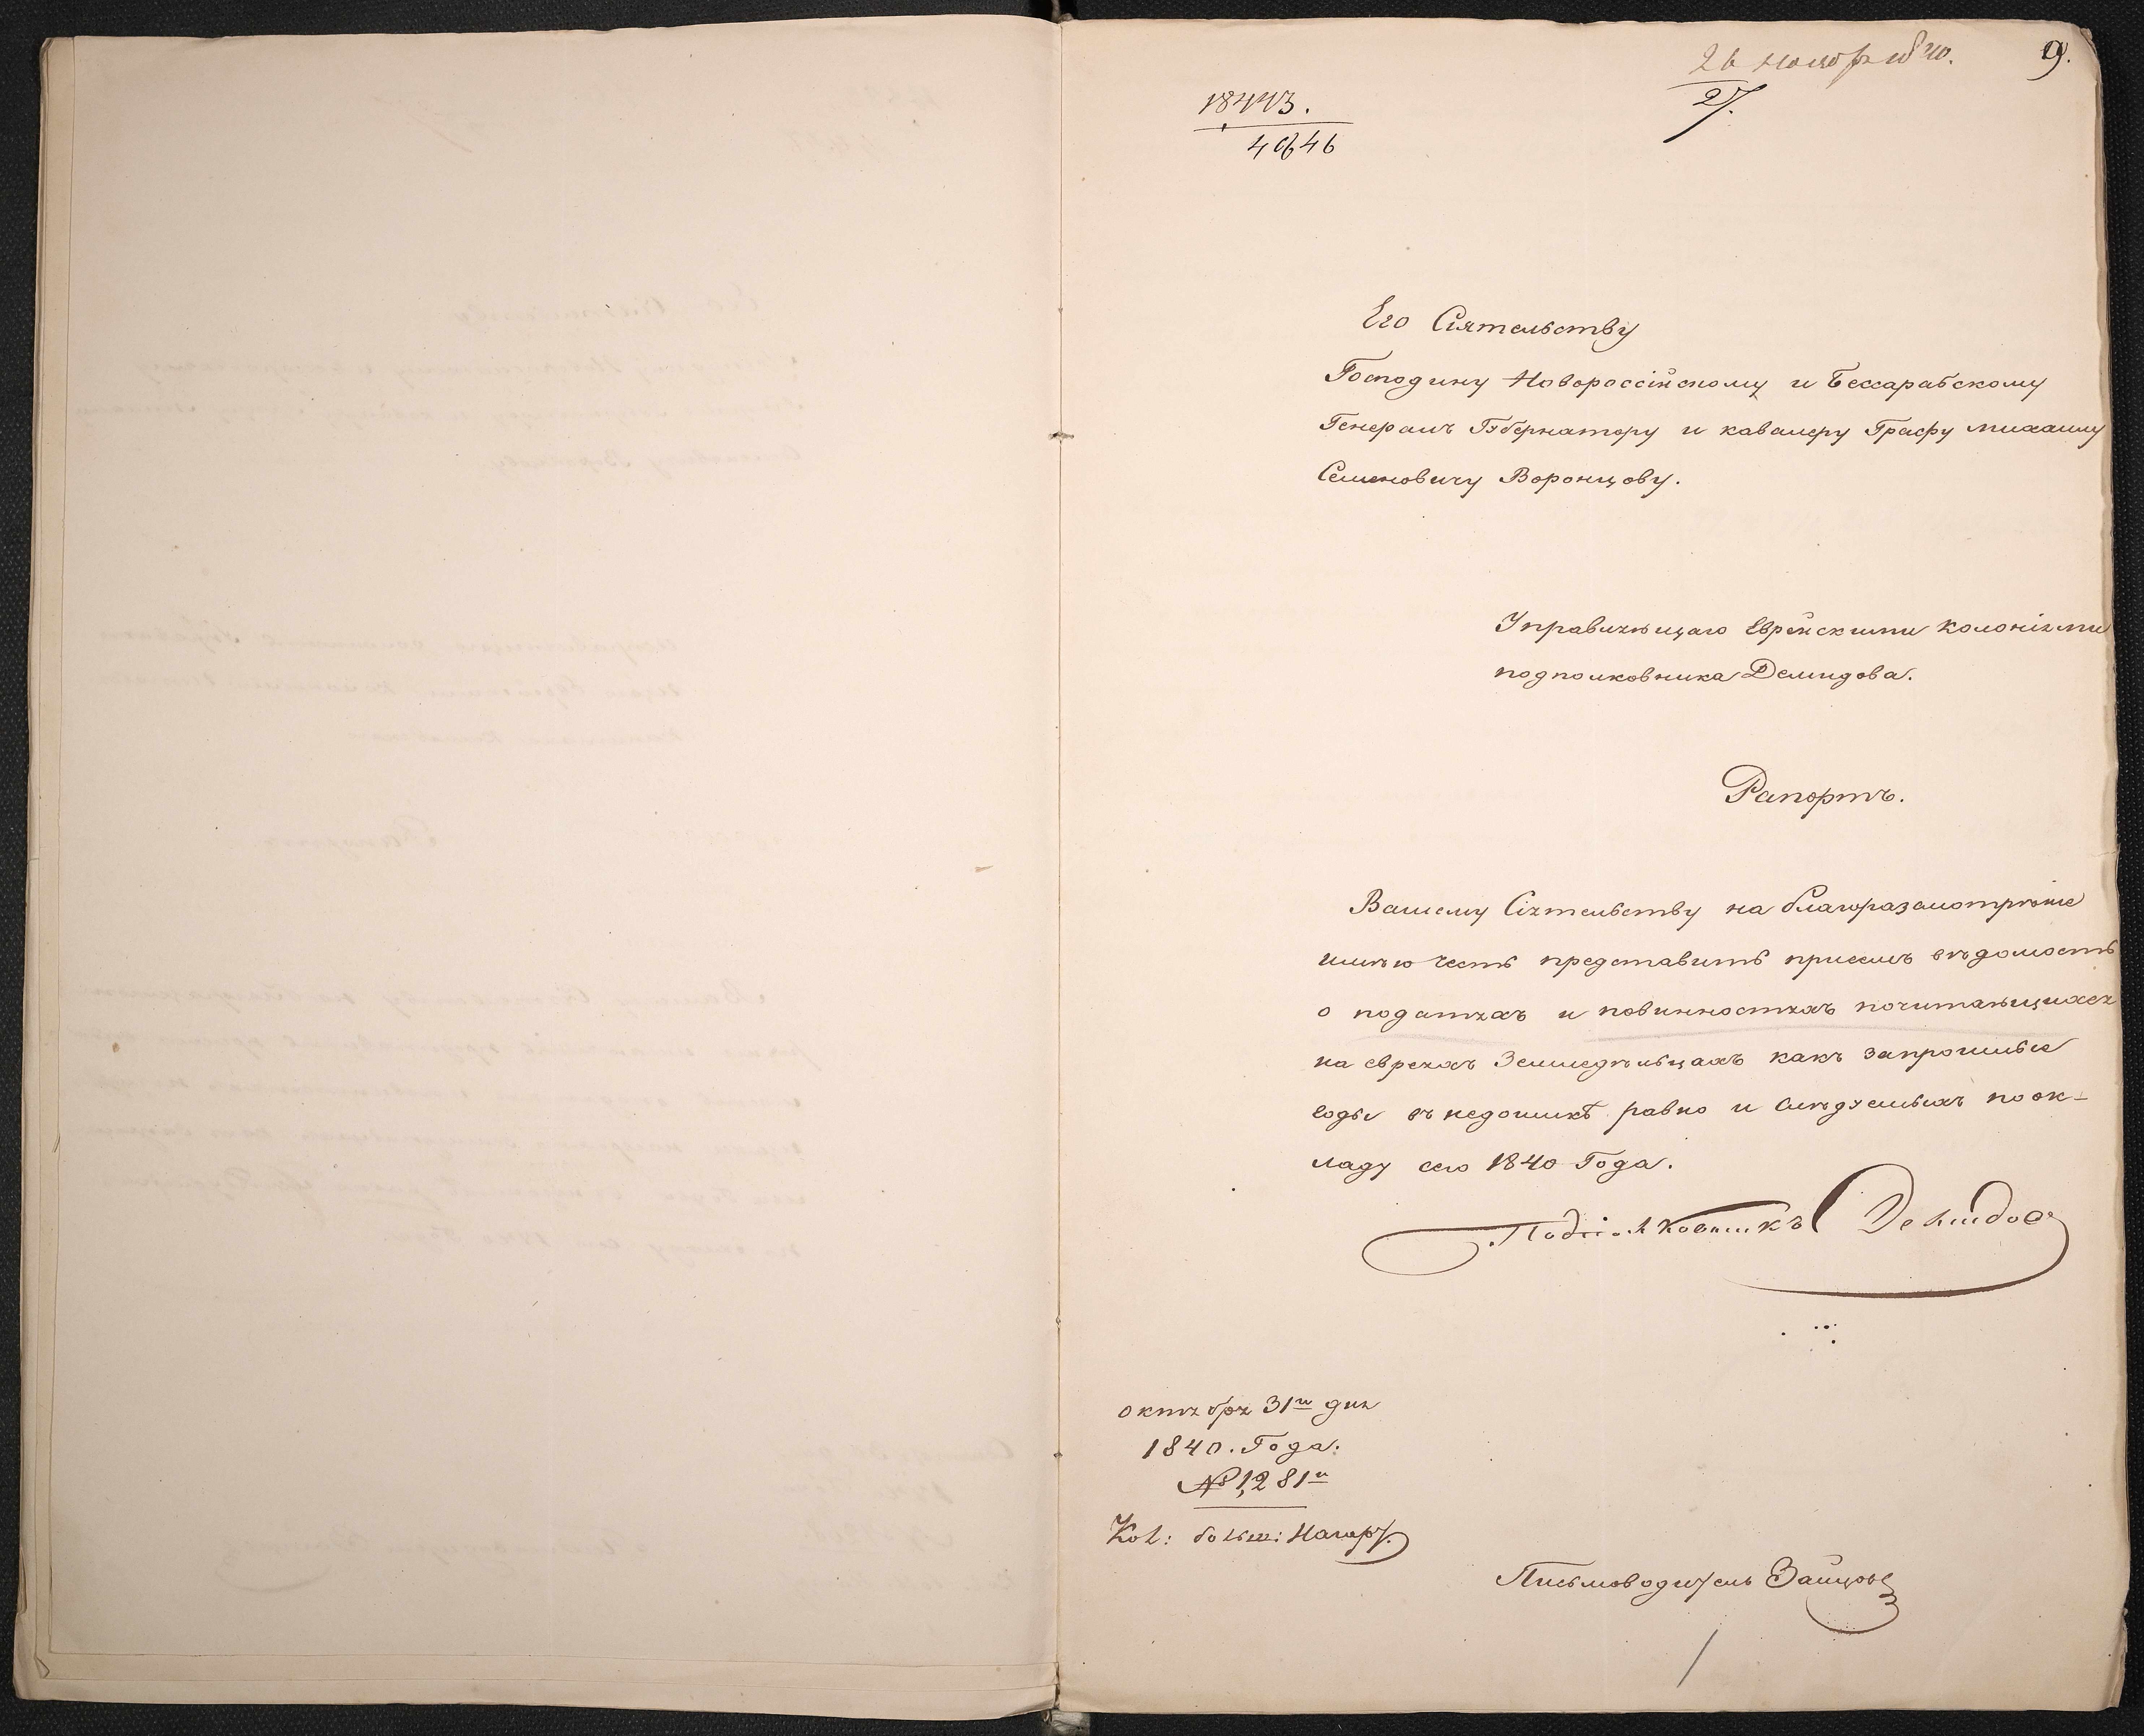 26 ноября 840.
9.
27.
18443.
4646
Его Сіятельству
Господину Новороссійскому и Бессарабскому
Генералъ Губернатору и кавалеру Графу михаилу
Семеновичу Воронцову.
Управляющаго Еврейскими колоніями
подполковника Демидова.
Рапортъ.
Вашему Сіятельству на благоразсмотрѣніе
имѣю честь представить присемъ вѣдомость
о податяхъ и повинностяхъ почитающихся
на евреяхъ Земледѣльцахъ какъ запрошлые
годы въ недоимкѣ равно и слѣдуемыхъ по ок-
ладу сего 1840 Года.
Подполковникъ Демидовъ
октября 31го дня
1840. Года.
№ 1,281й
Кол: больш: Нагар.
Письмоводитель Зайцовъ